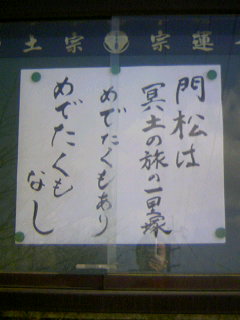 土宗 宗運
門松は
冥土の旅の一里塚
めでたくもあり
めでたくも
なし